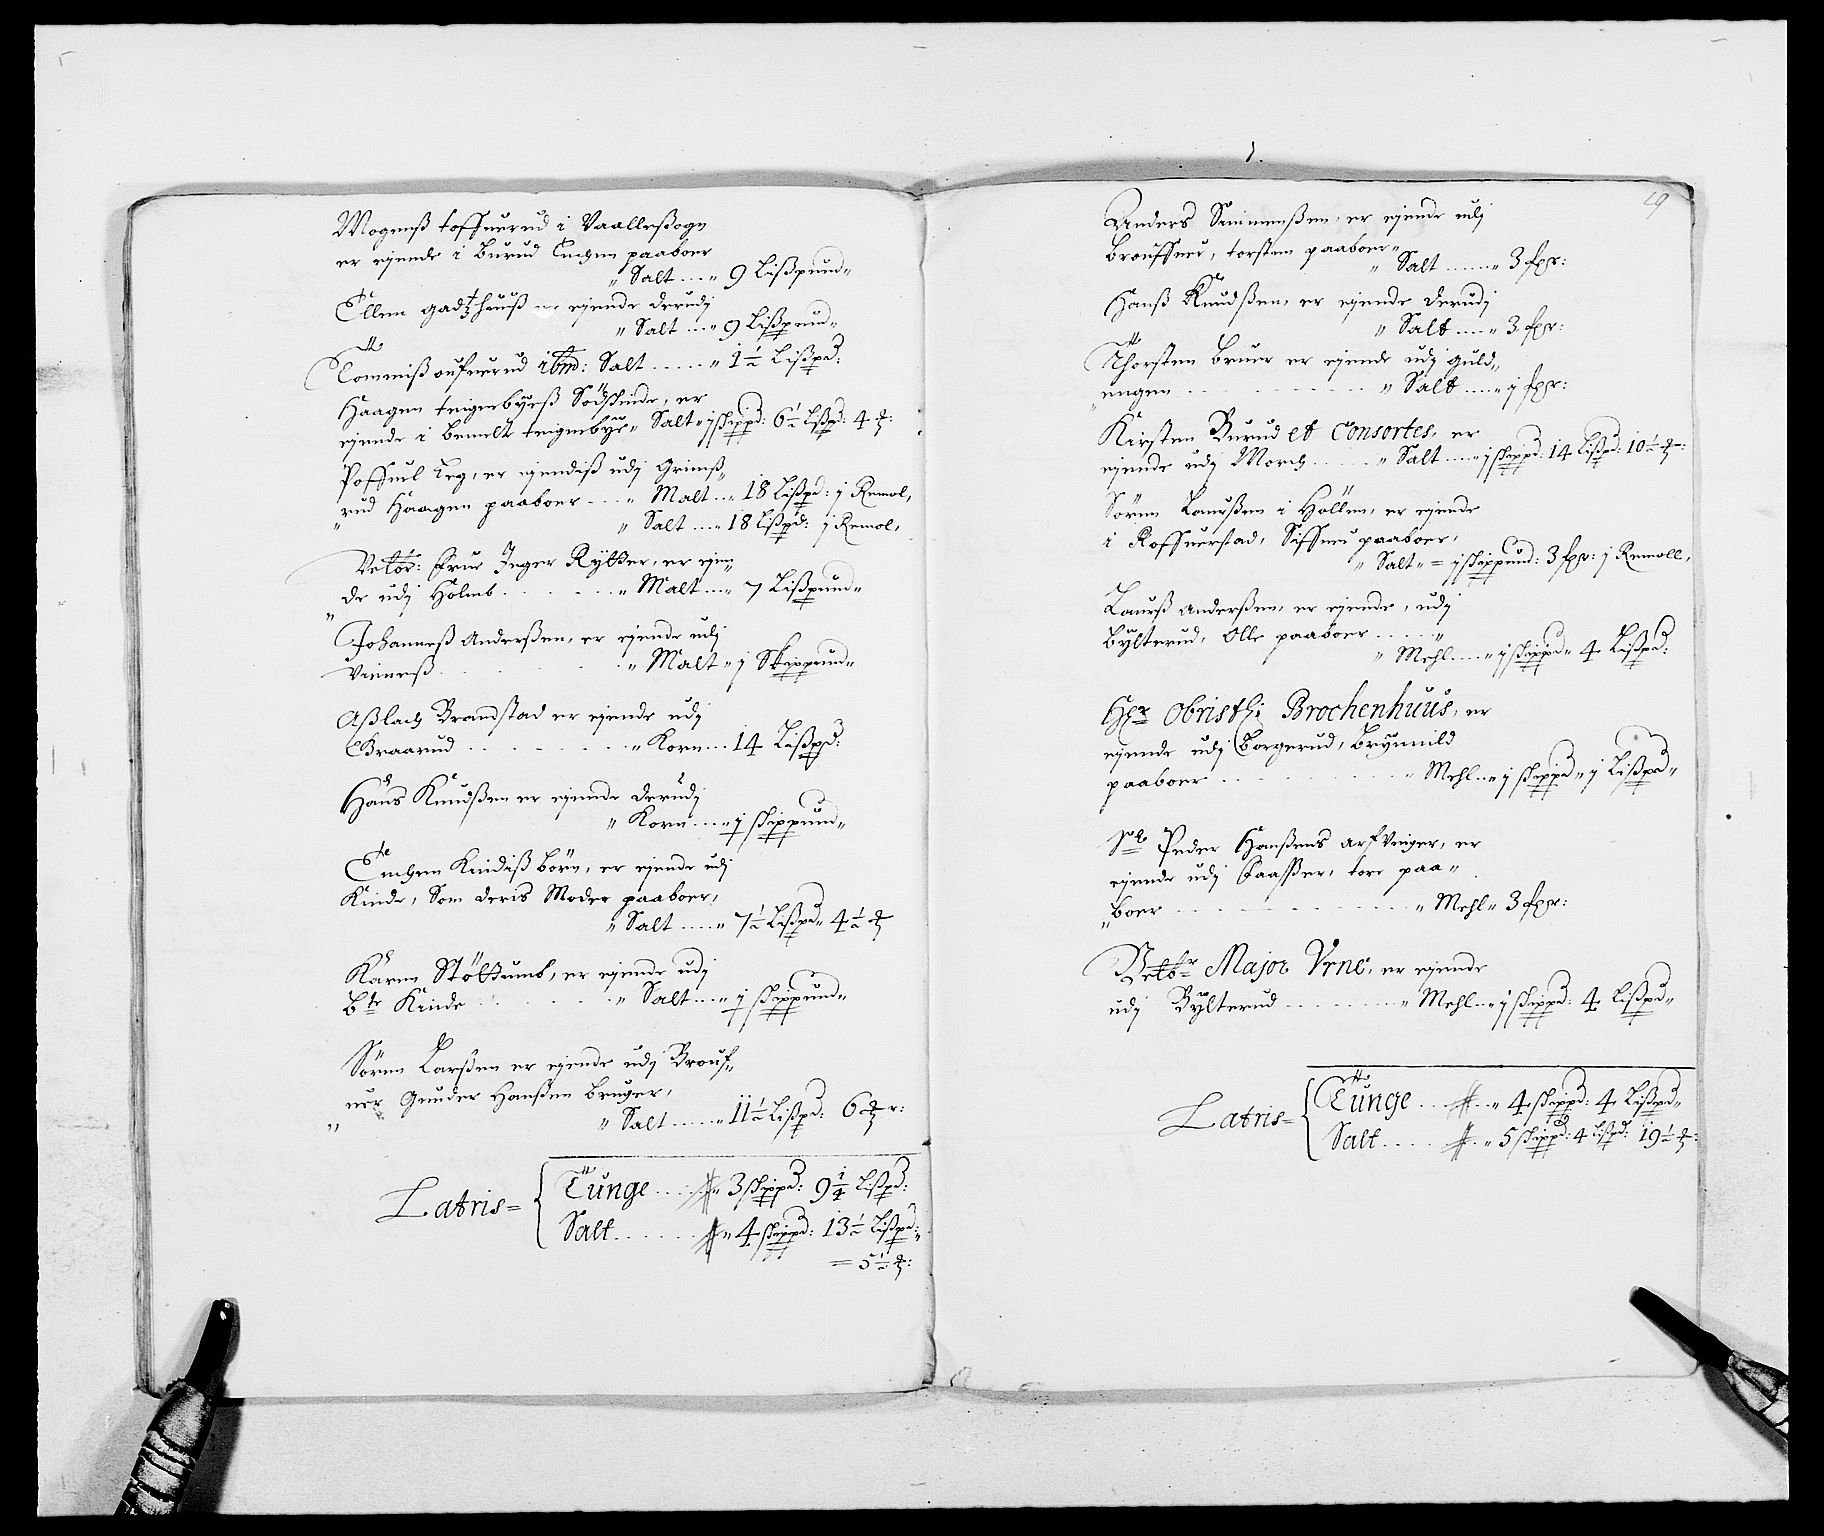 Mogenß toffuerud i Vaalleßogn
er ejende i Burud Tuchen paaboer
" Salt .... " 9 Lißpund "
Ellen gadtzhuuß er ejende derudj
" Salt .... " 9 Lißpund "
Tommiß oufuerud ibm: Salt ..... " 1½ Lißpd:
Haagen teigenbyeß Södskinde, er
ejende i bemelt teigenbye " Salt " j skippd: 6½ Lßpd: 4 ℔:
Poffuel Leg, er ejendiß udj Grimß"
"rud Haagen paaboer .... " Malt .. " 18 Lißpd: j Remol,
" Salt .... " 18 Lßpd: j Remol,
Velbr: Frue Inger Rytter, er ejen"
"de udj Holmb ...... " Malt .... " 7 Lißpund "
Johanneß Anderßen, er ejende udj
Vinneß ...... " Malt " j Skippund "
Aßlach Brandstad er ejende udj
Braarud ........ " Korn .... 14 Lißpd:
Hans Knudßen er ejende derudj
" Korn .... " j skippund "
Tuchen Kindiß börn, er ejende udj
Kinde, Som deris Moder paaboer,
" Salt .... " 7½ Lißpd " 4½ ℔
Karen Stöltumb, er ejende udj
Bte Kinde ....... " Salt .... " j skippund "
Sören Larßen er ejende udj Brouf"
"ner Gunder Hanßen bruger,
" Salt ..... " 11½ Lißpd: 6 ℔r:
Latris = Tunge ..... " 3 skippd: 9¼ Lißpd:
Salt ....... " 4 skippd: 13½ Lißpd:"
= 5½ ℔:
19
Anders Simmenßen, er ejende udj
Brouffner, torsten paaboer "
" Salt ...... " 3 fgr:
Hanß Knudßen, er ejende derudj
" Salt .... " 3 fgr:
Thorsten Bruer er ejende udj guld"
"ungen ......... " Salt .... " j fgr:
Kirsten Burud et Consortes, er
ejende udj Morch ..... " Salt .... " j skippd: 14 Lißpd: 10½ ℔:
Sören Laurßen i Höllen, er ejende
i Roffuerstad, Siffuer paaboer,
" Salt " = j skippund: 3 fgr: j Remoll,
Laurß Anderßen, er ejende, udj
Bylterud, Olle paaboer ..... "
" Mehl .... " j skippd " 4 Lißpd:
Hr Obristl: Brochenhuus, er
ejende udj Borgerud, Brynnild
paaboer .......... " Mehl .. " j skippd " j Lißpd "
Sl Peder Hanßens arfvinger, er
ejende udj Faaßer, tore paa "
"boer ............ " Mehl " 3 fgr:
Velbr Major Vrne, er ejende
udj Bylterud ...... " Mehl .. " j skippd: 4 Lißpd "
Latris = Tunge ...... " 4 skippd: 4 Lißpd "
Salt ...... " 5 skippd: 4 Lißpd: 19½ ℔: